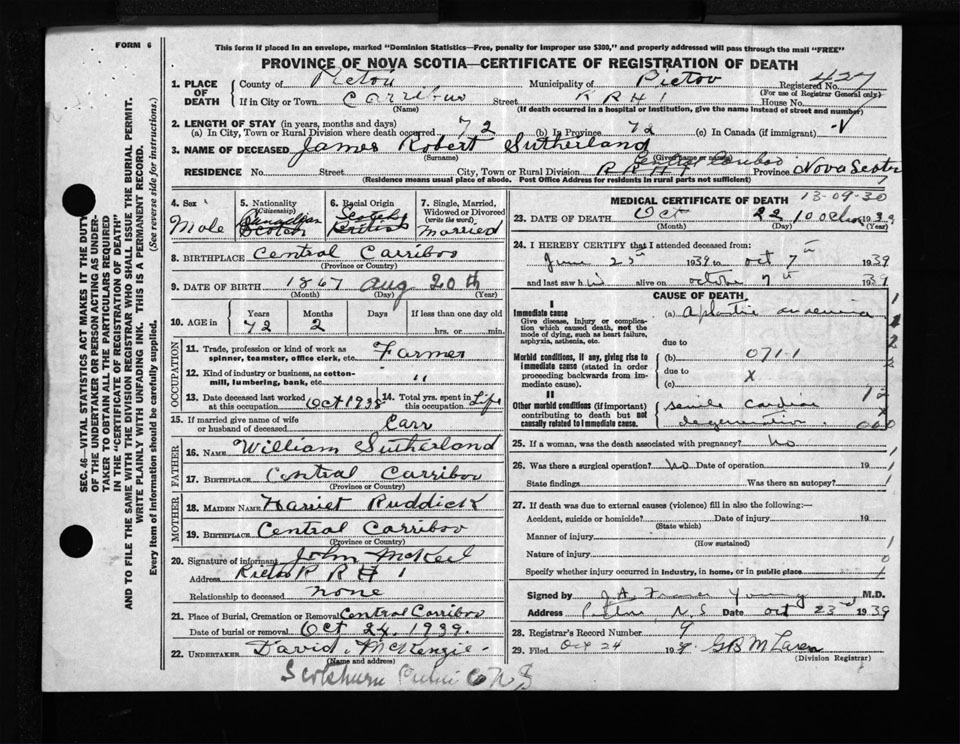 FORM 6
This form if placed in an envelope, marked "Dominion Statistics—Free, penalty for improper use $300," and properly addressed will pass through the mail "FREE"
PROVINCE OF NOVA SCOTIA—CERTIFICATE OF REGISTRATION OF DEATH
SEC. 46—VITAL STATISTICS ACT MAKES IT THE DUTY
OF THE UNDERTAKER OR PERSON ACTING AS UNDER-
TAKER TO OBTAIN ALL THE PARTICULARS REQUIRED
IN THE "CERTIFICATE OF REGISTRATION OF DEATH"
AND TO FILE THE SAME WITH THE DIVISION REGISTRAR WHO SHALL ISSUE THE BURIAL PERMIT.
WRITE PLAINLY WITH UNFADING INK. THIS IS A PERMANENT RECORD.
Every item of information should be carefully supplied. (See reverse side for instructions.)
1. PLACE OF DEATH County of Pictou Municipality of Pictou Registered No. 427
(For use of Registrar General only)
If in City or Town Carribou Street R R # 1 House No.
(Name) (If death occurred in a hospital or institution, give the name instead of street and number)
2. LENGTH OF STAY (in years, months and days)
(a) In City, Town or Rural Division where death occurred 72 (b) In Province 72 (c) In Canada (if immigrant)
3. NAME OF DECEASED James Robert Sutherland
(Surname) (Given name or names)
RESIDENCE No. Street City, Town or Rural Division Central Caribou R R # 1 Province Nova Scotia
(Residence means usual place of abode. Post Office Address for residents in rural parts not sufficient)
4. Sex Male
5. Nationality (Citizenship) Canadian Scotch
6. Racial Origin Scotch British
7. Single, Married, Widowed or Divorced (write the word) Married
8. BIRTHPLACE Central Carribou
(Province or Country)
9. DATE OF BIRTH 1867 Aug 20th
(Month) (Day) (Year)
10. AGE in Years 72 Months 2 Days If less than one day old hrs. or min.
OCCUPATION
11. Trade, profession or kind of work as spinner, teamster, office clerk, etc. Farmer
12. Kind of industry or business, as cotton-mill, lumbering, bank, etc. "
13. Date deceased last worked at this occupation Oct 1938 14. Total yrs. spent in this occupation Life
15. If married give name of wife or husband of deceased Carr
FATHER
16. NAME William Sutherland
17. BIRTHPLACE Central Carribou
(Province or Country)
MOTHER
18. MAIDEN NAME Harriet Ruddick
19. BIRTHPLACE Central Carribou
(Province or Country)
20. Signature of informant John McKeil
Address Pictou R R # 1
Relationship to deceased none
21. Place of Burial, Cremation or Removal Central Carribou
Date of burial or removal Oct 24, 1939.
22. UNDERTAKER David McKenzie
(Name and address)
Scotsburn Pictou Co N S
MEDICAL CERTIFICATE OF DEATH
13-09-30
23. DATE OF DEATH Oct 22 1939
(Month) (Day) (Year)
24. I HEREBY CERTIFY that I attended deceased from:
June 25th 1939 to Oct 7th 1939
and last saw him alive on October 7th 1939
CAUSE OF DEATH
I
Immediate cause (a) Aplastic anaemia
Give disease, injury or complication which caused death, not the mode of dying, such as heart failure, asphyxia, asthenia, etc.
due to
Morbid conditions, if any, giving rise to immediate cause (stated in order proceeding backwards from immediate cause). (b) 071.1
due to X
(c)
II
Other morbid conditions (if important) contributing to death but not causally related to immediate cause. Senile Cardiac degeneration
25. If a woman, was the death associated with pregnancy? No
26. Was there a surgical operation? No Date of operation 19
State findings Was there an autopsy?
27. If death was due to external causes (violence) fill in also the following:—
Accident, suicide or homicide? Date of injury 19
(State which)
Manner of injury
(How sustained)
Nature of injury
Specify whether injury occurred in industry, in home, or in public place
Signed by J A Fraser Young M.D.
Address Pictou N.S Date Oct 23rd 1939
28. Registrar's Record Number 9
29. Filed Oct 24 19 G B McLaren
(Division Registrar)